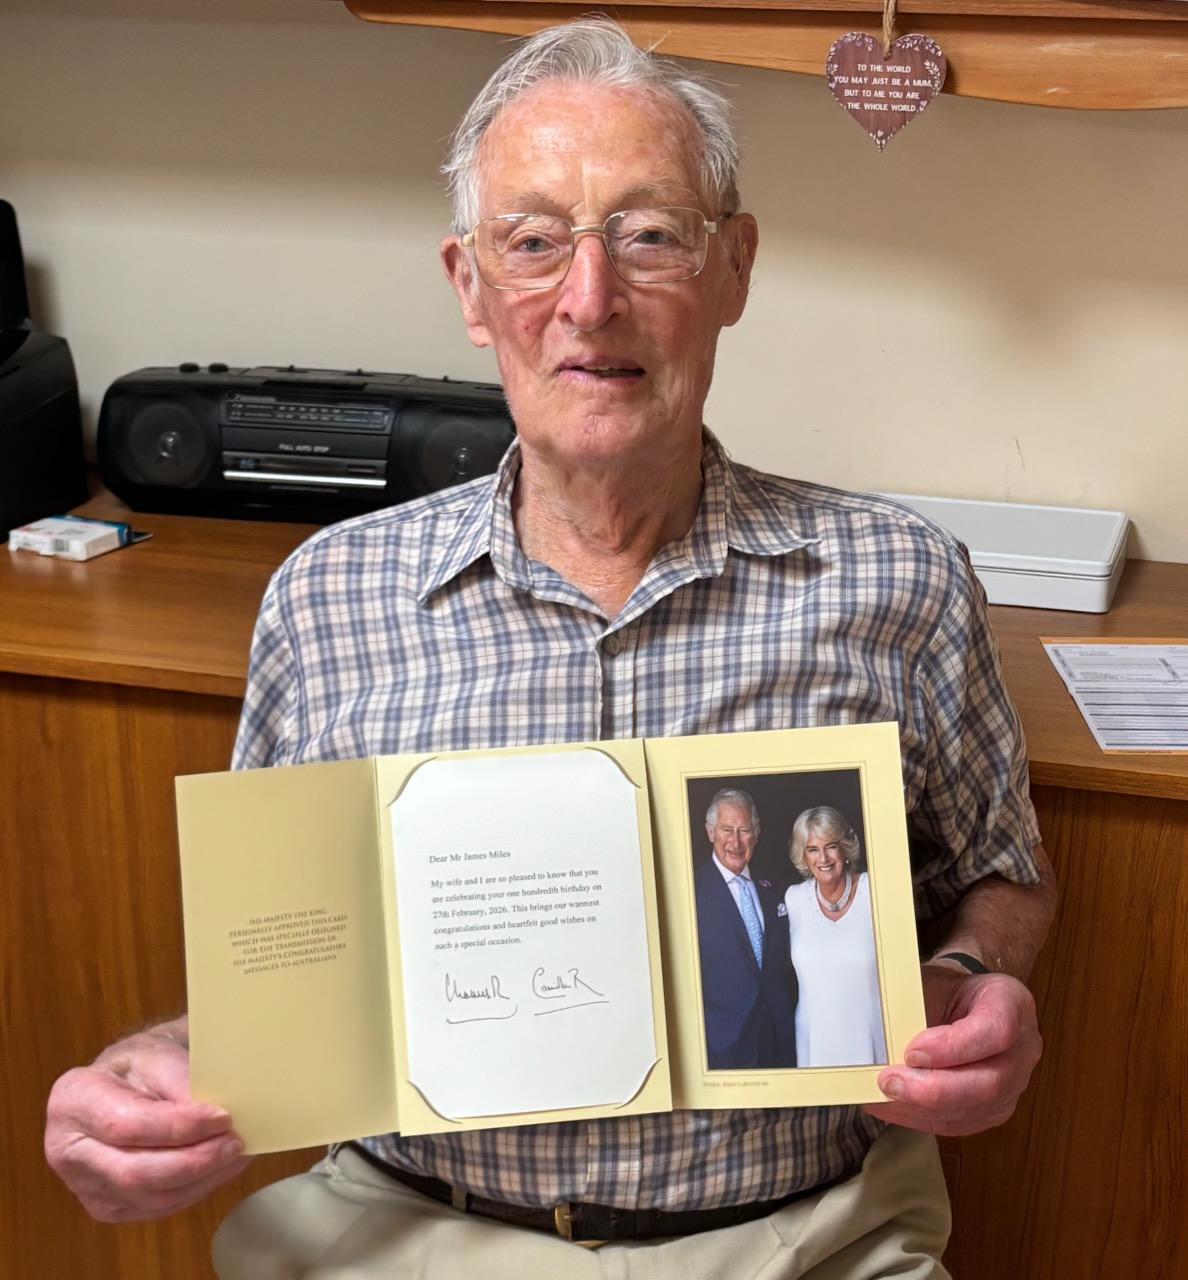 TO THE WORLD
YOU MAY JUST BE A MUM,
BUT TO ME YOU ARE
THE WHOLE WORLD.
Panasonic
FULL AUTO STOP
HIS MAJESTY THE KING
PERSONALLY APPROVED THIS CARD
WHICH WAS SPECIALLY DESIGNED
FOR THE TRANSMISSION OF
HIS MAJESTY'S CONGRATULATORY
MESSAGES TO AUSTRALIANS
Dear Mr James Miles
My wife and I are so pleased to know that you
are celebrating your one hundredth birthday on
27th February, 2026. This brings our warmest
congratulations and heartfelt good wishes on
such a special occasion.
Charles R Camilla R
Photo: